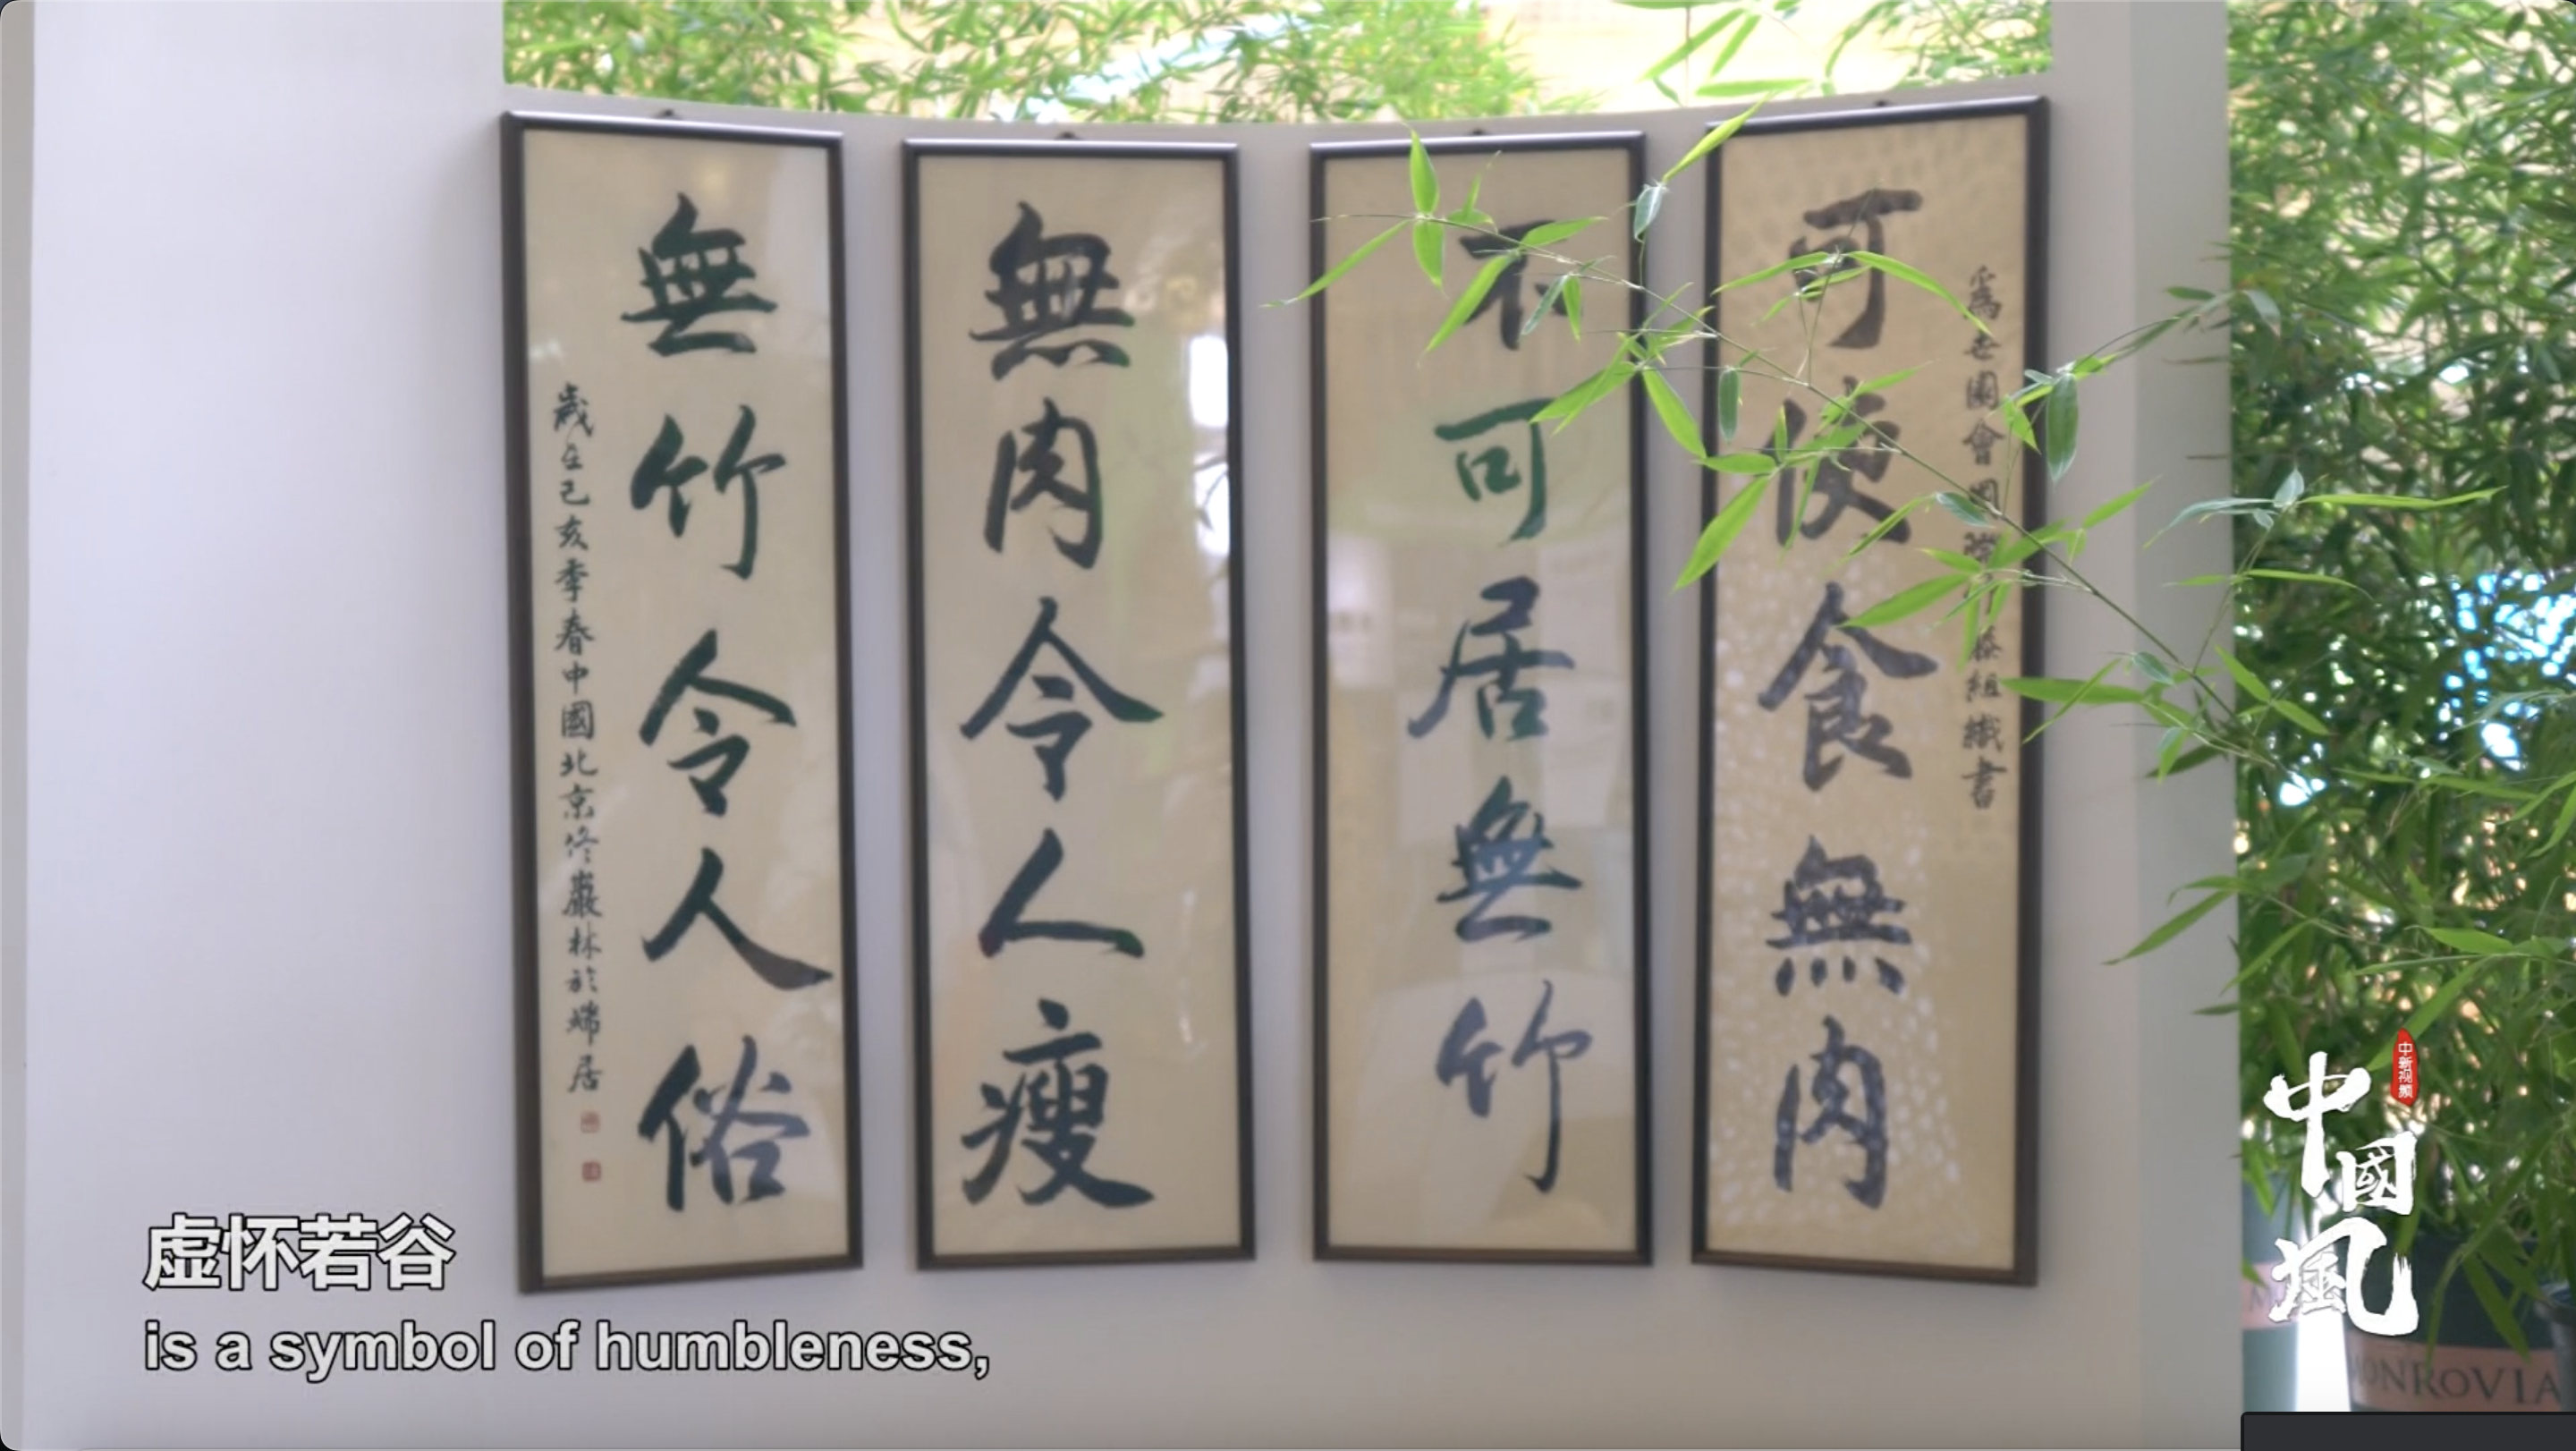 為世園會國際竹藤組織書
可使食無肉
不可居無竹
無肉令人瘦
無竹令人俗
歲在己亥季春中國北京佟巖林於端居
虚怀若谷
is a symbol of humbleness,
中新视频
中國風
MONROVIA